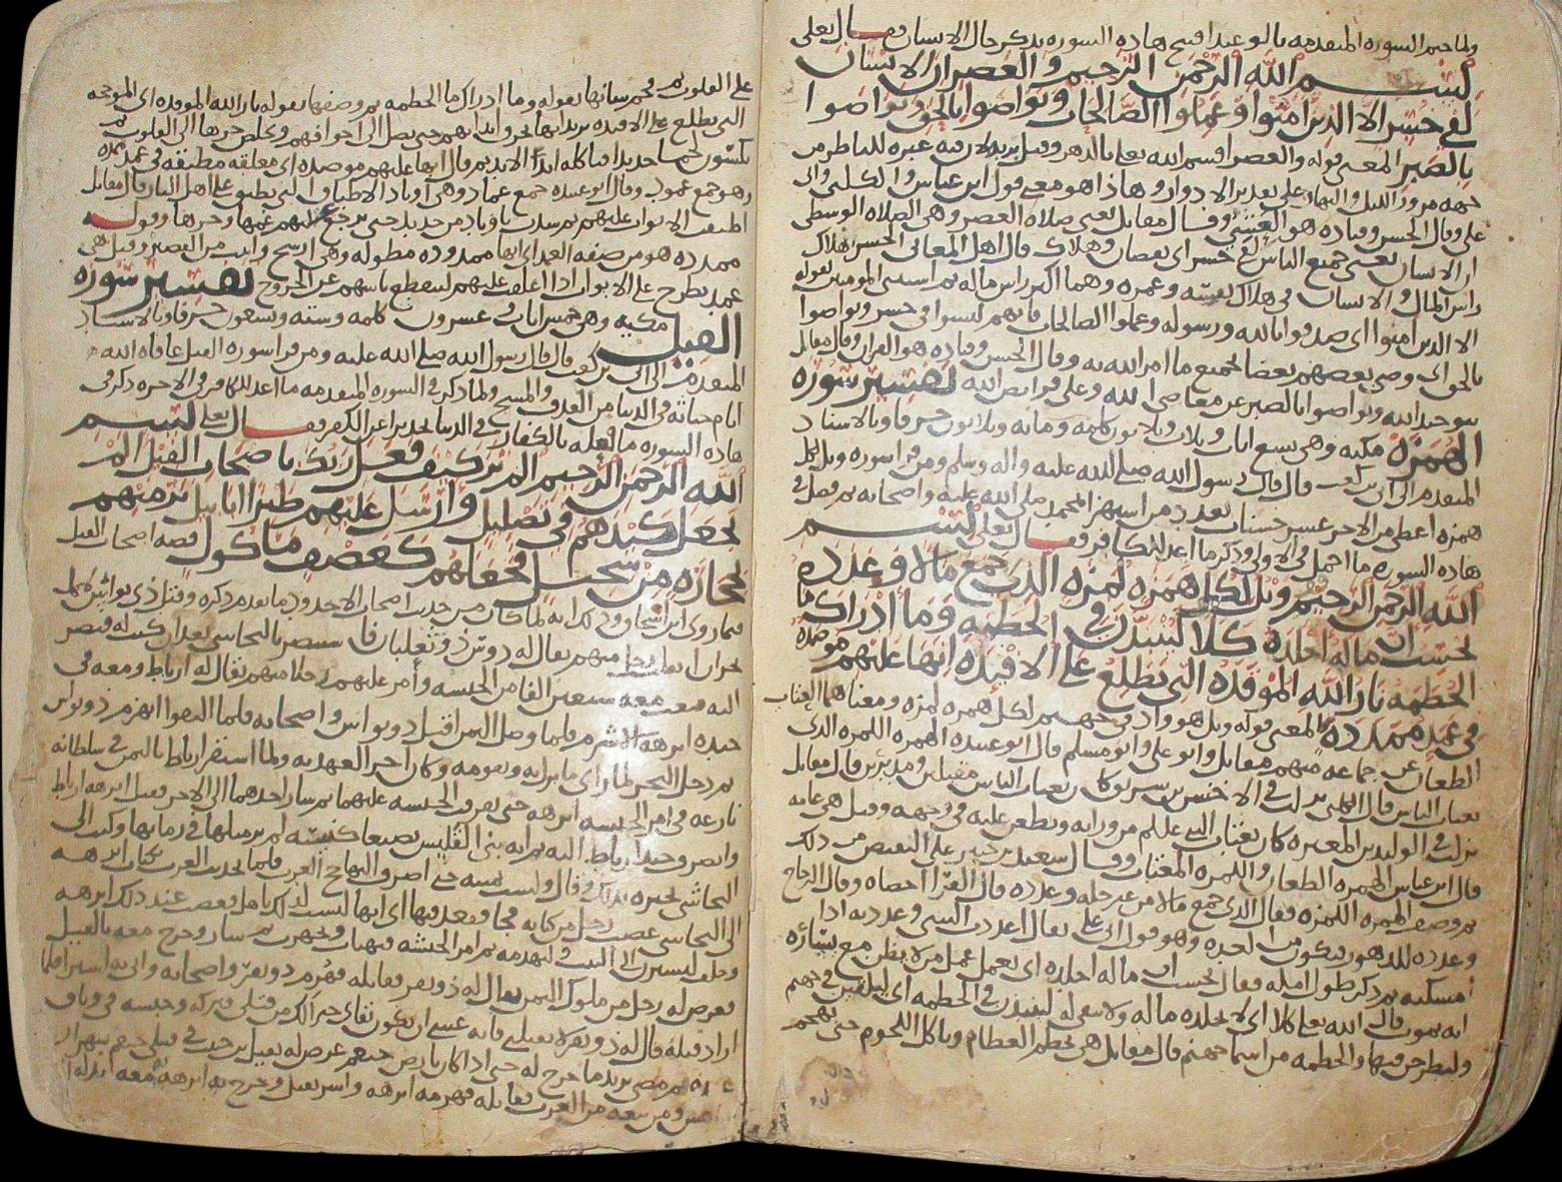 ولما ختم السوره المتقدمه بالوعيد افتتح هاده السوره بذكر حال الانسان فقال تعلى
بسم الله الرحمن الرحيم والعصر ان الانسان
لفي خسر الا الذين امنوا وعملوا الصالحات وتواصوا بالحق وتواصوا
بالصبر المعنى قوله والعصر اقسم الله تعلى بالدهر وقيل بربه لان فيه عبره للناظر من
جهه مرور الليل والنهار على تقدير الادوار وهاذا هو معنى قول ابن عباس والكلبي وابى
على وقال الحسن وقتاده هو العشي وقال مقاتل يعنى صلاه العصر وهى الصلاه الوسطى
ان الانسان يعنى جميع الناس لفي خسر اى نقصان وهلاك قال اهل المعانى الخسر هلاك
راس المال والانسان في هلاك نفسه وعمره وهما اكبر راس ماله ثم استثنى المومنين بقوله
الا الذين امنوا اى صدقوا بالله ورسوله وعملوا الصالحات فانهم ليسوا فى خسر وتواصوا
بالحق اى وصى بعضهم بعضا بجميع ما امر الله به وقال الحسن وقتاده هو القران وقال مقاتل
بتوحيد الله وتواصوا بالصبر عن معاصى الله وعلى فرائض الله تفسير سوره
الهمزه مكيه وهى تسع ايات وثلاث وثلاثون كلمه ومائه وثلاثون حرفا وبالاسناد
المتقدم الى ابي بن كعب قال قال رسول الله صلى الله عليه واله وسلم ومن قرا سوره ويل لكل
همزه اعطى من الاجر عشر حسنات بعدد من استهزا بمحمد صلى الله عليه واصحابه ثم فصل في
هاده السوره ما اجمل في الاولى وذكر ما اعد للكافر فقال تعلى بسم
الله الرحمن الرحيم ويل لكل همزه لمزه الذى جمع مالا وعدده
يحسب ان ماله اخلده كلا لينبذن في الحطمه وما ادراك ما
الحطمه نار الله الموقده التى تطلع على الافئده انها عليهم موصده
في عمد ممدده المعنى قوله ويل هو واد في جهنم لكل همزه لمزه ومعناهما المغتاب
الطعان عن جماعه منهم مقاتل وابو على وابو مسلم قال ابو عبيده الهمزه اللمزه الذى
يغتاب الناس قال الكلبى نزلت في الاخنس بن شريق كان يغتاب الناس مقبلين ومدبرين قال مقاتل
نزلت في الوليد بن المغيره كان يغتاب النبى عليلم من ورائه ويطعن عليه في وجهه وقيل هى عامه
قال ابن عباس الهمزه الطعان واللمزه المغتاب وقال سعيد بن جبير على النقيض من ذلك
ثم وصف الهمزه اللمزه فقال الذى جمع مالا من غير حله وعدده قال الفرا احصاه وقال الزجاج
وعدده للدهور فيكون من العده وهو قول ابى على يقال اعددت الشى وعددته اذا
امسكته ثم ذكر طول امله فقال يحسب ان ماله اخلده اى يعمل عمل من لا يظن مع يساره
انه يموت قال الله تعلى كلا اى لا يخلده ماله ولا يبقى له لينبذن في الحطمه اى ليلقين في جهنم
وليطرحن فيها والحطمه من اسما جهنم قال مقاتل هى تحطم العظام وتاكل اللحوم حتى تهجم
على القلوب ثم فخم شانها بقوله وما ادراك ما الحطمه ثم وصفها بقوله نار الله الموقده اى الموججه
التى تطلع على الافئده يريد انها تحرق ابدانهم حتى تصل الى اجوافهم ويخلص حرها الى القلوب ثم
تكسون لحما جديدا فتاكله ابدا الابد ثم قال انها عليهم موصده اى مغلقه مطبقه في عمد ممدده
وهو جمع عمود وقال ابو عبيده جمع عماد وهى اوتاد الاطباق التى تطبق على اهل النار قال مقاتل
اطبقت الابواب عليهم ثم سدت باوتاد من حديد حتى يرجع عليهم غمها وحرها وقوله
ممدده هو من صفه العمد اى انها ممدوده مطوله وهى ارسخ واثبت من القصير وقيل هى
عمد تطرح على الابواب اذا اغلقت عليهم لينقطع ياسهم عن الخروج تفسير سوره
الفيل مكيه وهى خمس ايات وعشرون كلمه وسته وتسعون حرفا وبالاسناد
المتقدم الى ابي بن كعب قال قال رسول الله صلى الله عليه ومن قرا سوره الفيل عافاه الله
ايام حياته في الدنيا من القذف والمسخ ولما ذكر في السوره المتقدمه ما اعد للكافر في الاخره ذكر في
هاده السوره ما فعله بالكفار في الدنيا تحذيرا عن الكفر فقال تعلى بسم
الله الرحمن الرحيم الم تر كيف فعل ربك باصحاب الفيل الم
يجعل كيدهم في تضليل وارسل عليهم طيرا ابابيل ترميهم
بحجاره من سجيل فجعلهم كعصف ماكول قصه اصحاب الفيل
فيما روى ابن اسحاق وذلك انه لما كان من حديث اصحاب الاخدود ما تقدم ذكره وقتل ذى نواس
نجران افلت رجل منهم يقال له دوس ذو ثعلبان فاستنصر بالنجاشى بعد ان كتب له قيصر
اليه فبعث معه سبعين الفا من الحبشه وامر عليهم رجلا منهم يقال له ارياط ومعه في
جنده ابرهه الاشرم فلما وصل اليمن اقبل ذو نواس واصحابه فلما التقوا انهزم ذو نواس
ثم دخل البحر لما راى ما نزل به وبقومه وكان اخر العهد به ولما استقر ارياط باليمن في سلطانه
نازعه في امر الحبشه ابرهه حتى تفرقت الحبشه عليهما ثم سار احدهما الى الاخر فقتل ابرهه ارياط
النجاشى يخبره بذلك وقال ولست بمنته حتى اصرف اليها حج العرب فلما تحدثت العرب بكتاب ابرهه
الى النجاشى غضب رجل من كنانه فجا فقعد فيها اى انها ليست لذلك باهل فغضب عند ذلك ابرهه
وحلف ليسيرن الى البيت وليهدمه ثم امر الحبشه فتهيات وتجهزت ثم سار وخرج معه بالفيل
فعرض له رجل من ملوك اليمن يقال له ذو نفر فقاتله فهزم ذو نفر واصحابه واتى به اسيرا فلما
اراد قتله قال له ذو نفر لا تقتلنى فانه عسى ان يكون بقاى خير لك من قتلى فتركه وحبسه في وثاق